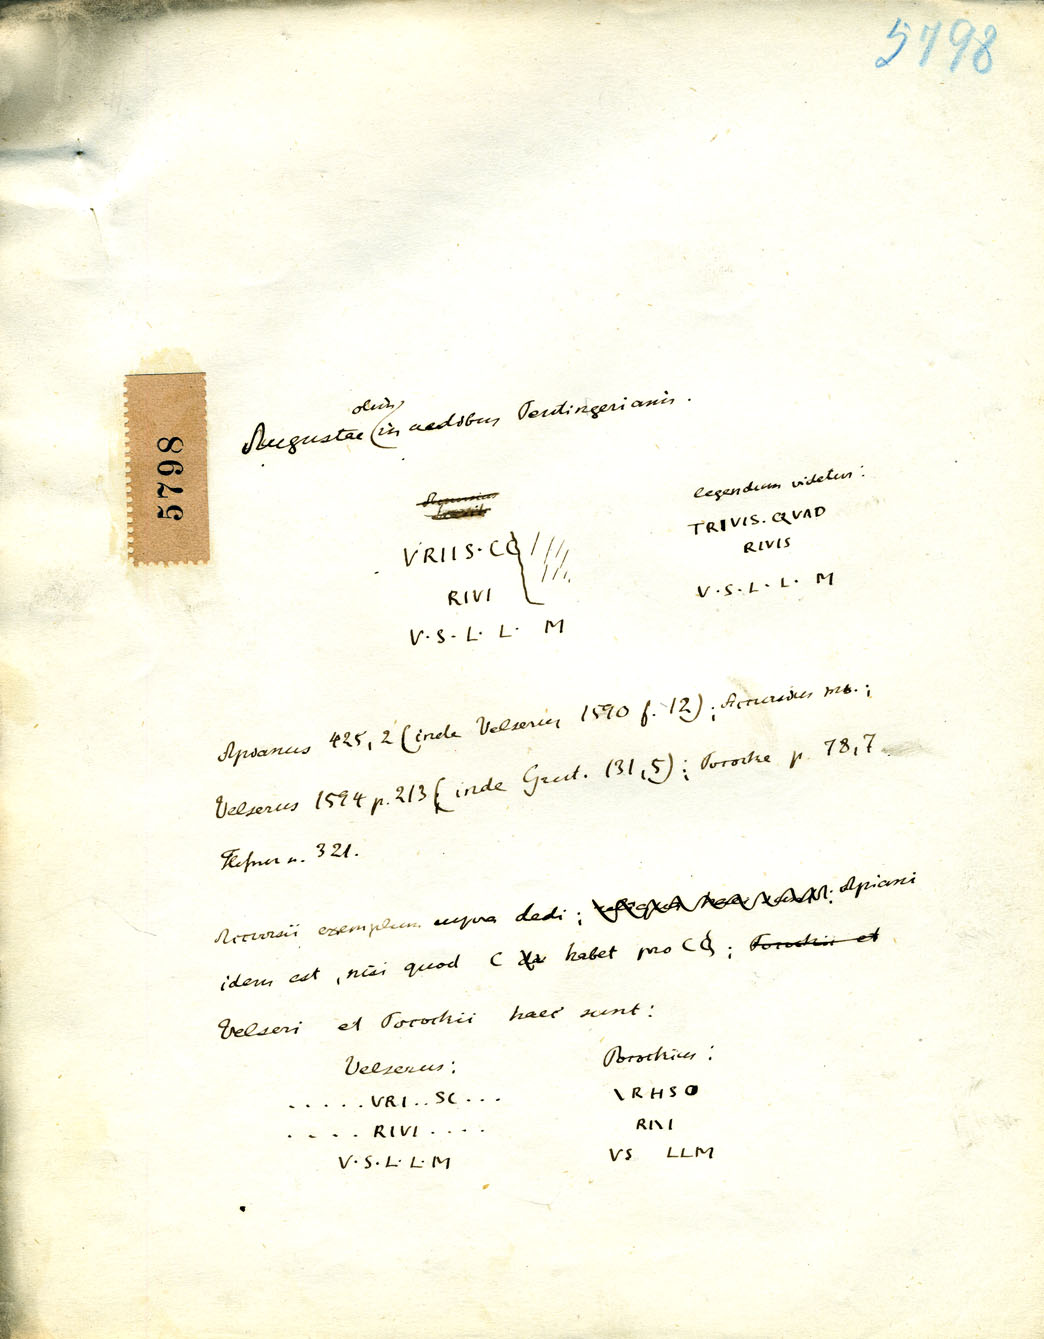 5798
5798
olim
Augustae in aedibus Peutingerianis.
legendum videtur:
VRIIS·CC
TRIVIS·QVAD
RIVI
RIVIS
V·S·L·L·M
V·S·L·L·M
Apianus 425,2 (inde Velserus 1590 f. 12); Accursius ms.;
Velserus 1594 p. 213 (inde Grut. 131,5); Pococke p. 78,7
Hefner n. 321.
Accursii exemplum supra dedi; Apiani
idem est, nisi quod C habet pro CC; Pocockii et
Velseri et Pocockii haec sunt:
Velserus:
Pocockius:
.....VRI..SC...
\RHSO
.....RIVI....
RI\I
V·S·L·L·M
VS LLM